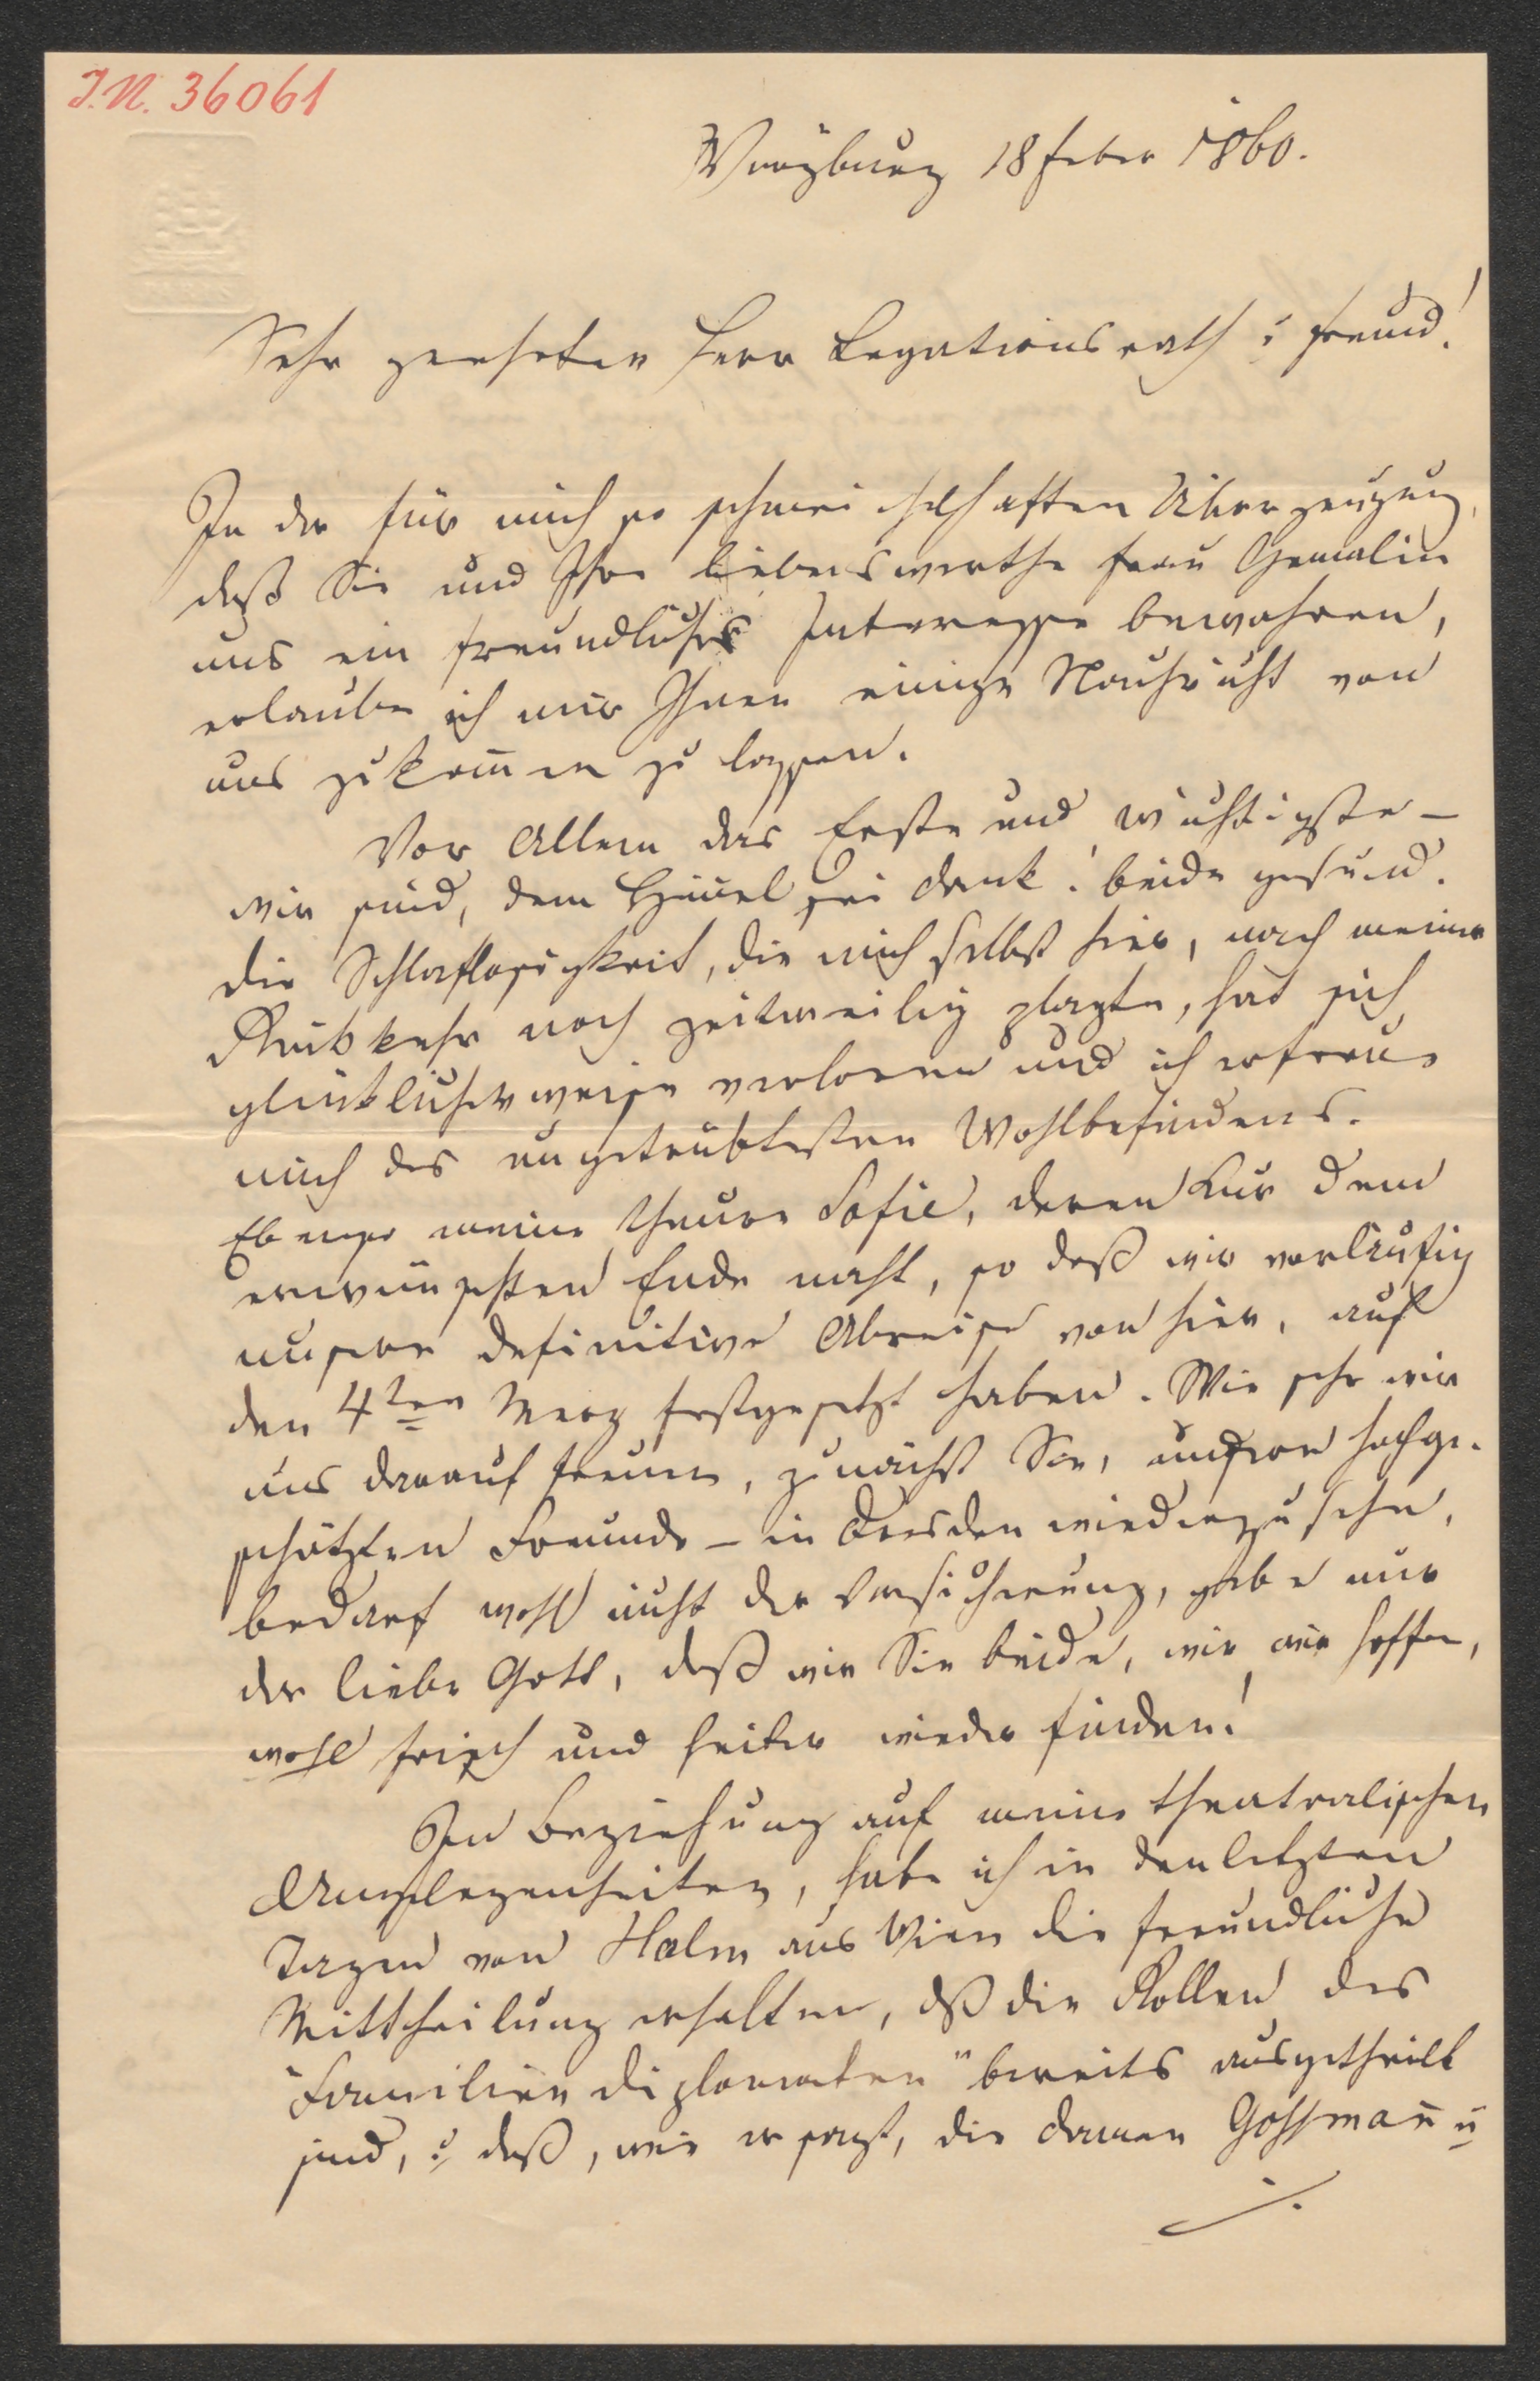 I.N. 36061
Würzburg 18 Feber 1860.
Sehr geehrter Herr Legationsrath u Freund!
In der für mich so schmeichelhaften Überzeugung,
daß Sie und Ihre liebenswerthe Frau Gemalin
uns ein freundliches Interesse bewahren,
erlaube ich mir Ihnen einige Nachricht von
uns zukom̅en zu lassen.
Vor Allem das Erste und wichtigste –
wir sind, dem Him̅el sei Dank! beide gesund.
Die Schlaflosigkeit, die mich selbst hier, nach meiner
Rückkehr noch zeitweilig plagte, hat sich
glücklicherweise verloren und ich erfreue
mich des ungetrübtesten Wohlbefindens.
Ebenso meine theure Sofie, deren Kur dem
erwünschten Ende naht, so daß wir vorläufig
unsere definitive Abreise von hier, auf
den 4ten Merz festgesetzt haben. Wie sehr wir
uns darauf freuen, zunächst Sie, unsere hochge-
schätzten Freunde – in Dresden wiederzusehn,
bedarf wohl nicht der Versicherung, gebe nur
der liebe Gott, daß wir Sie beide, wie wir hoffen,
wohl frisch und heiter wieder finden!
In Beziehung auf meine theatralischen
Angelegenheiten, habe ich in den letzten
Tagen von Halm aus Wien die freundliche
Mittheilung erhalten, daß die Rollen des
"Familien Diplomaten" bereits ausgetheilt
sind, u daß, wie er sagt, die Damen Gossman̅ u
./.